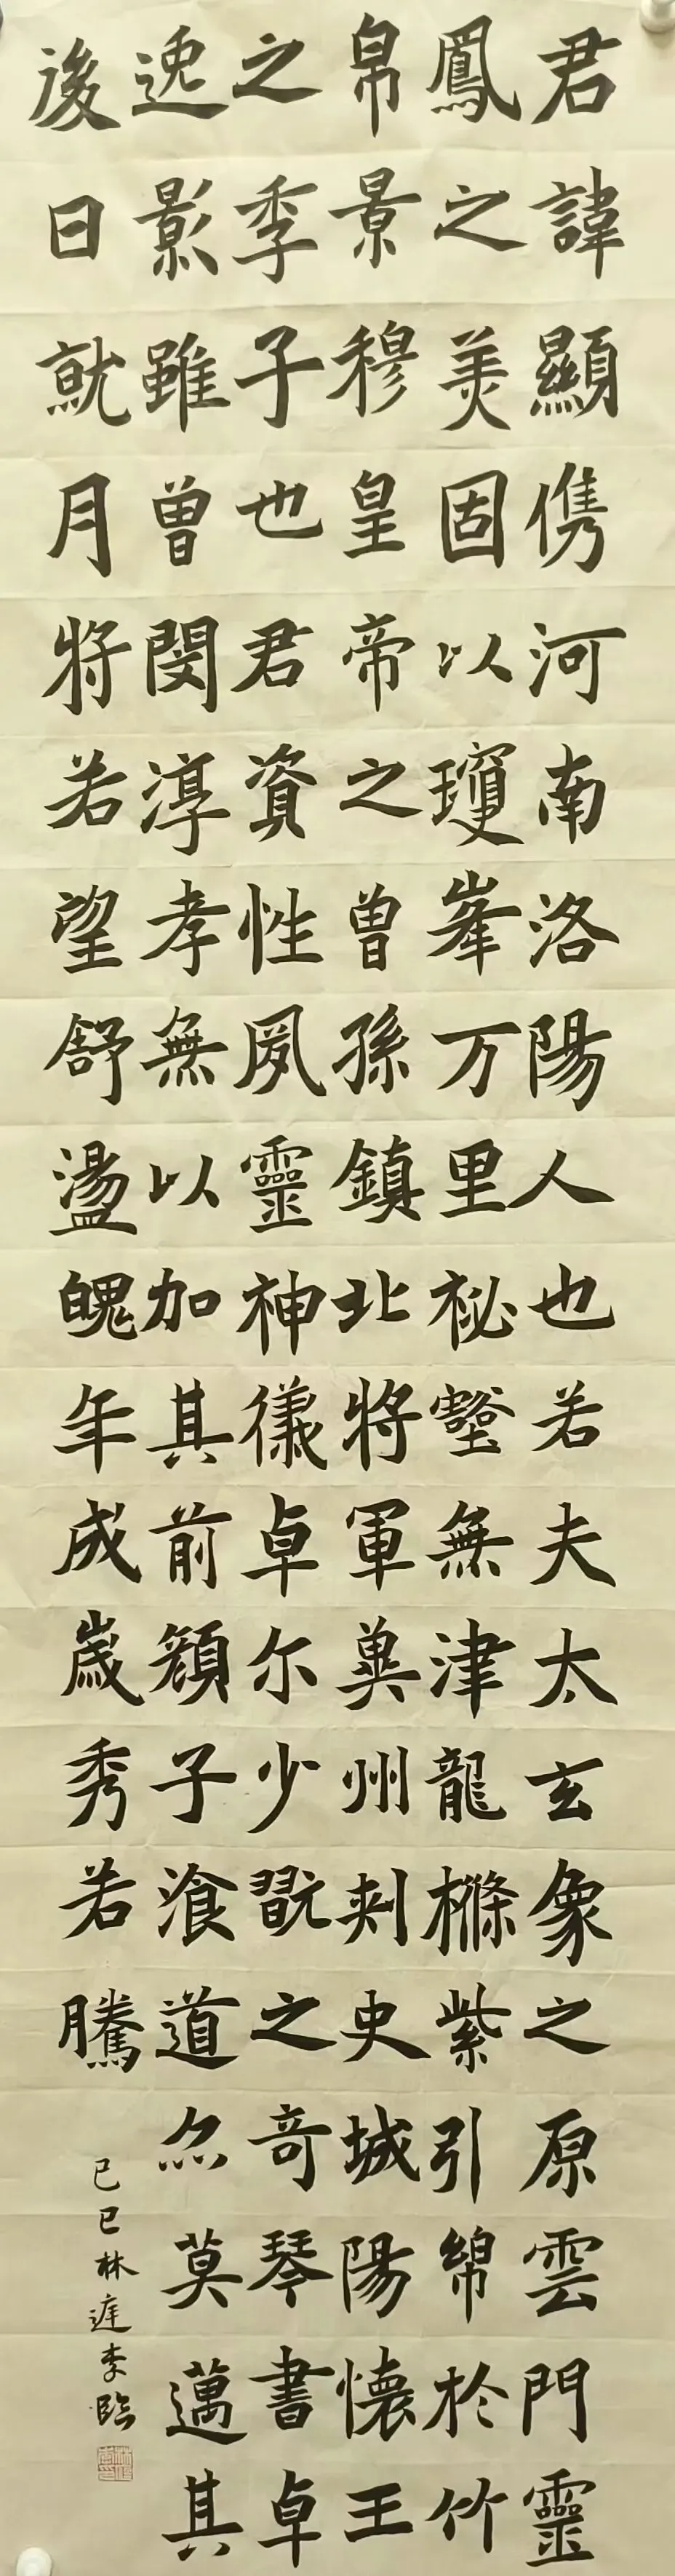 君諱顯儁河南洛陽人也若夫太玄象之原雲門靈
鳳之美固以瓊峯万里祕壑無津龍檖紫引綿於竹
帛景穆皇帝之曾孫鎮北將軍兾州刾史城陽懷王
之季子也君資性夙靈神儀卓尔少翫之奇琴書卓
逸影雖曾閔淳孝無以加其前顏子湌道亦莫邁其
後日就月將若望舒盪魄年成歲秀若騰
林 李臨